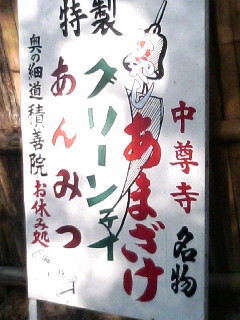 中尊寺名物
あまざけ
グリーンティ
特製
あんみつ
奥の細道
積善院
お休み処